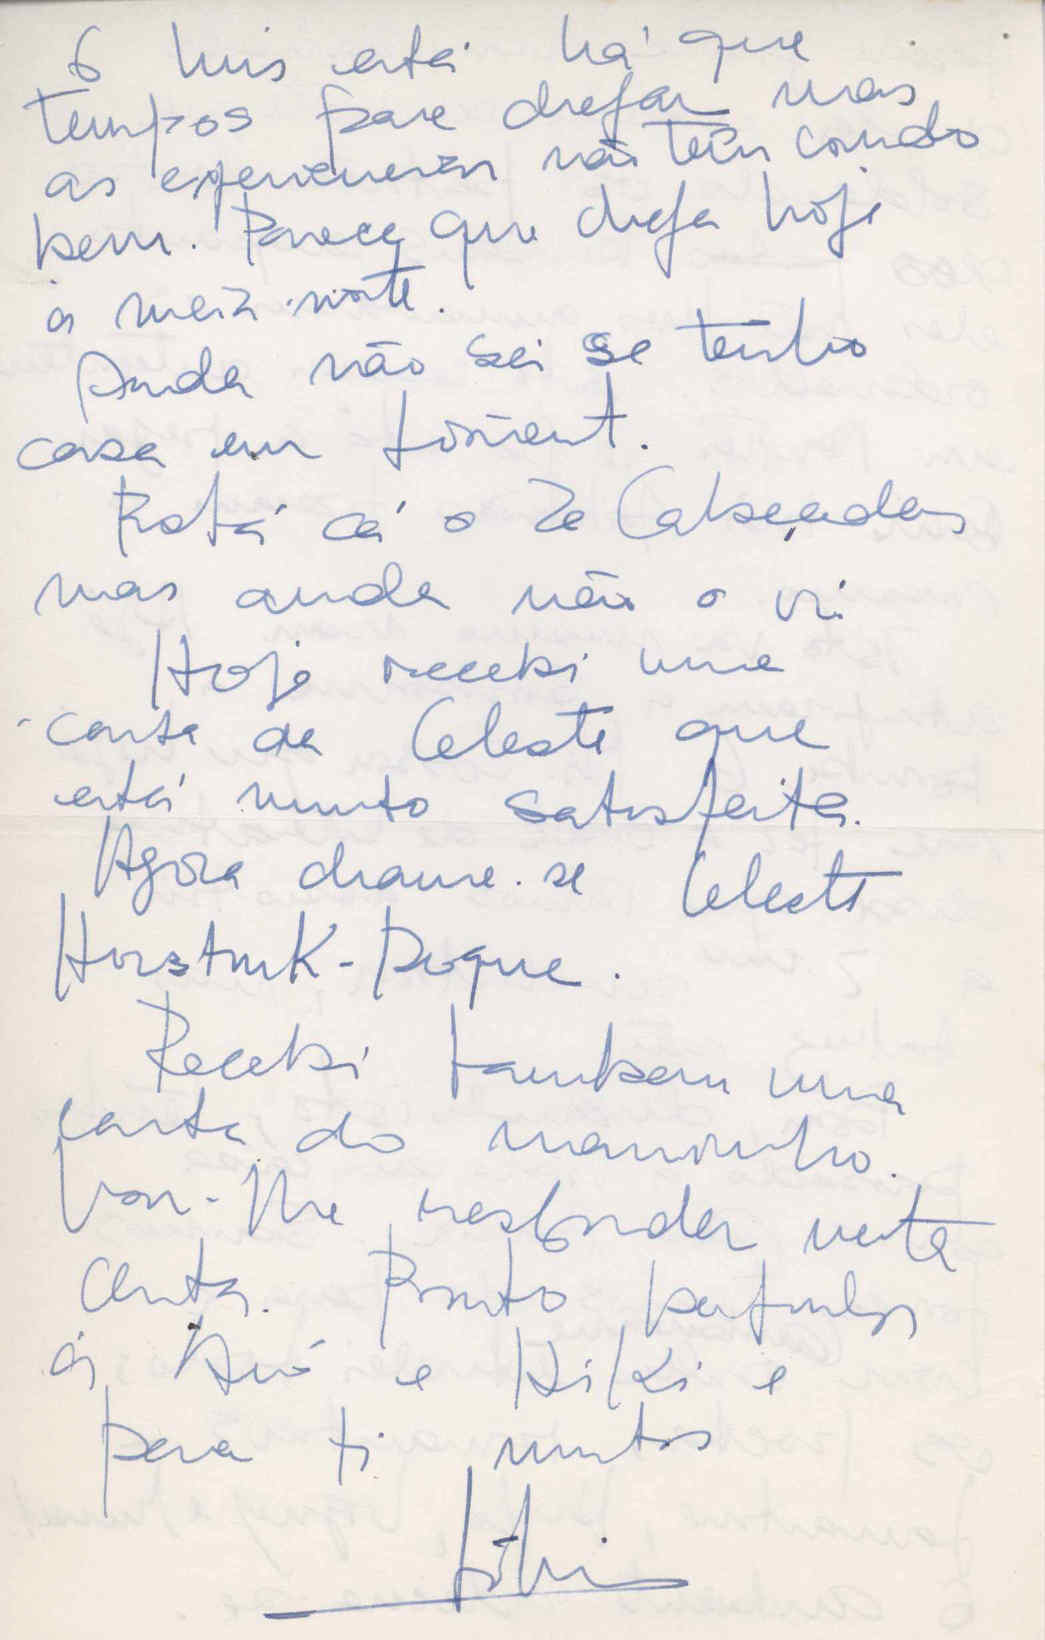 O Luis está há que
tempos para chegar mas
as experiencias não têm corrido
bem. Parece que chega hoje
à meia-noite.
Ainda não sei se tenho
casa em Lorient.
Está cá o Zé Calçadas
mas ainda não o vi.
Hoje recebi uma
carta da Celeste que
está muito satisfeita.
Agora chama-se Celeste
-Roque.
Recebi tambem uma
carta do maninho.
Vou-lhe responder nesta
carta. Ponto parabens
à Avó e Kiki e
para ti muitos